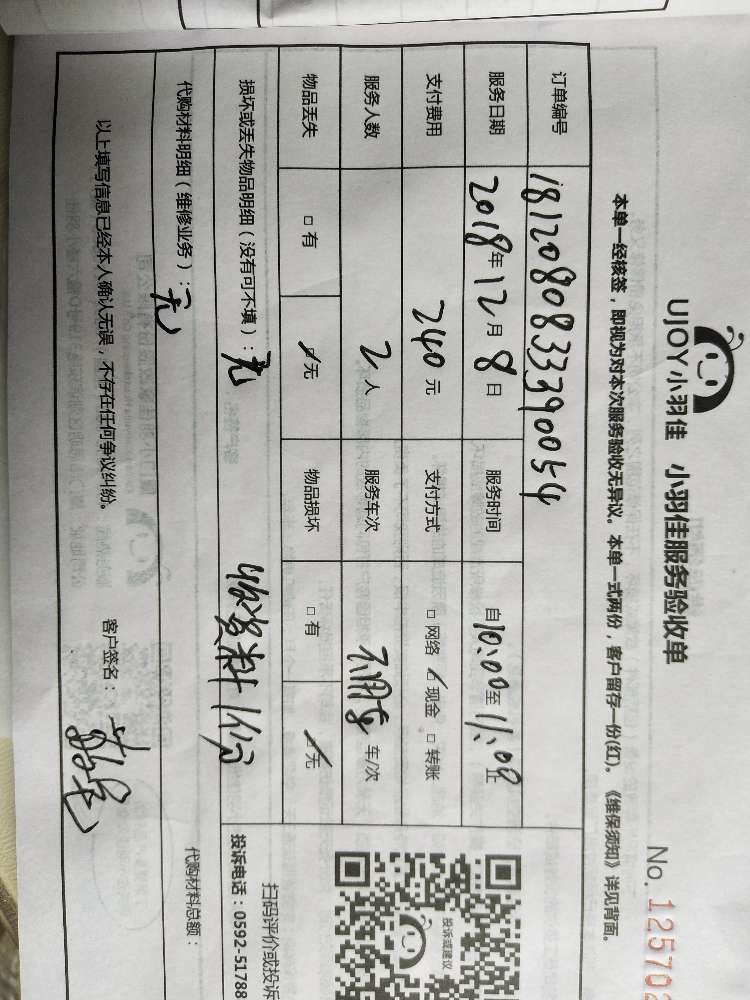 UJOY小羽佳 小羽佳服务验收单
No. 12570
本单一经核签，即视为对本次服务验收无异议。本单一式两份，客户留存一份(红)。《维保须知》详见背面。
订单编号 1812080833390054
服务日期 2018年12月8日 服务时间 自10:00至11:00止
支付费用 240元 支付方式 □网络 ☑现金 □转账
服务人数 2人 服务车次 不用车 车/次
物品丢失 □有 ☑无 物品损坏 □有 ☑无
损坏或丢失物品明细（没有可不填）：无 收资料1份
代购材料明细（维修业务）：无 代购材料总额：
以上填写信息已经本人确认无误，不存在任何争议纠纷。 客户签名：
投诉或建议
扫码评价或投诉
投诉电话：0592-51788